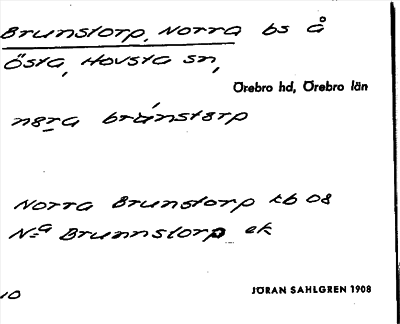 Brunstorp, Norra bs å
Östa, Hovsta sn,
Örebro hd, Örebro län
nøra brǻnstørp
Norra Brunstorp kb 08
N:a Brunnstorp ek
10
JÖRAN SAHLGREN 1908